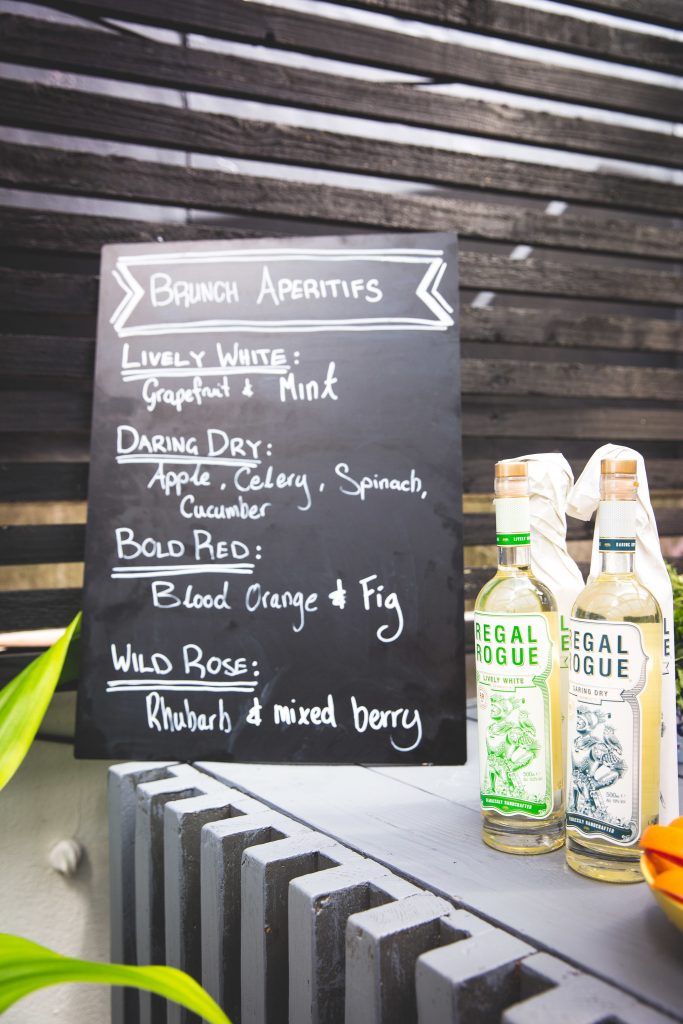 BRUNCH APERITIFS
LIVELY WHITE:
Grapefruit & Mint
DARING DRY:
Apple, Celery, Spinach,
Cucumber
BOLD RED:
Blood Orange & Fig
WILD ROSE:
Rhubarb & mixed berry
LIVELY
REGAL
ROGUE
LIVELY WHITE
500ml
REGAL
ROGUE
DARING DRY
500ml